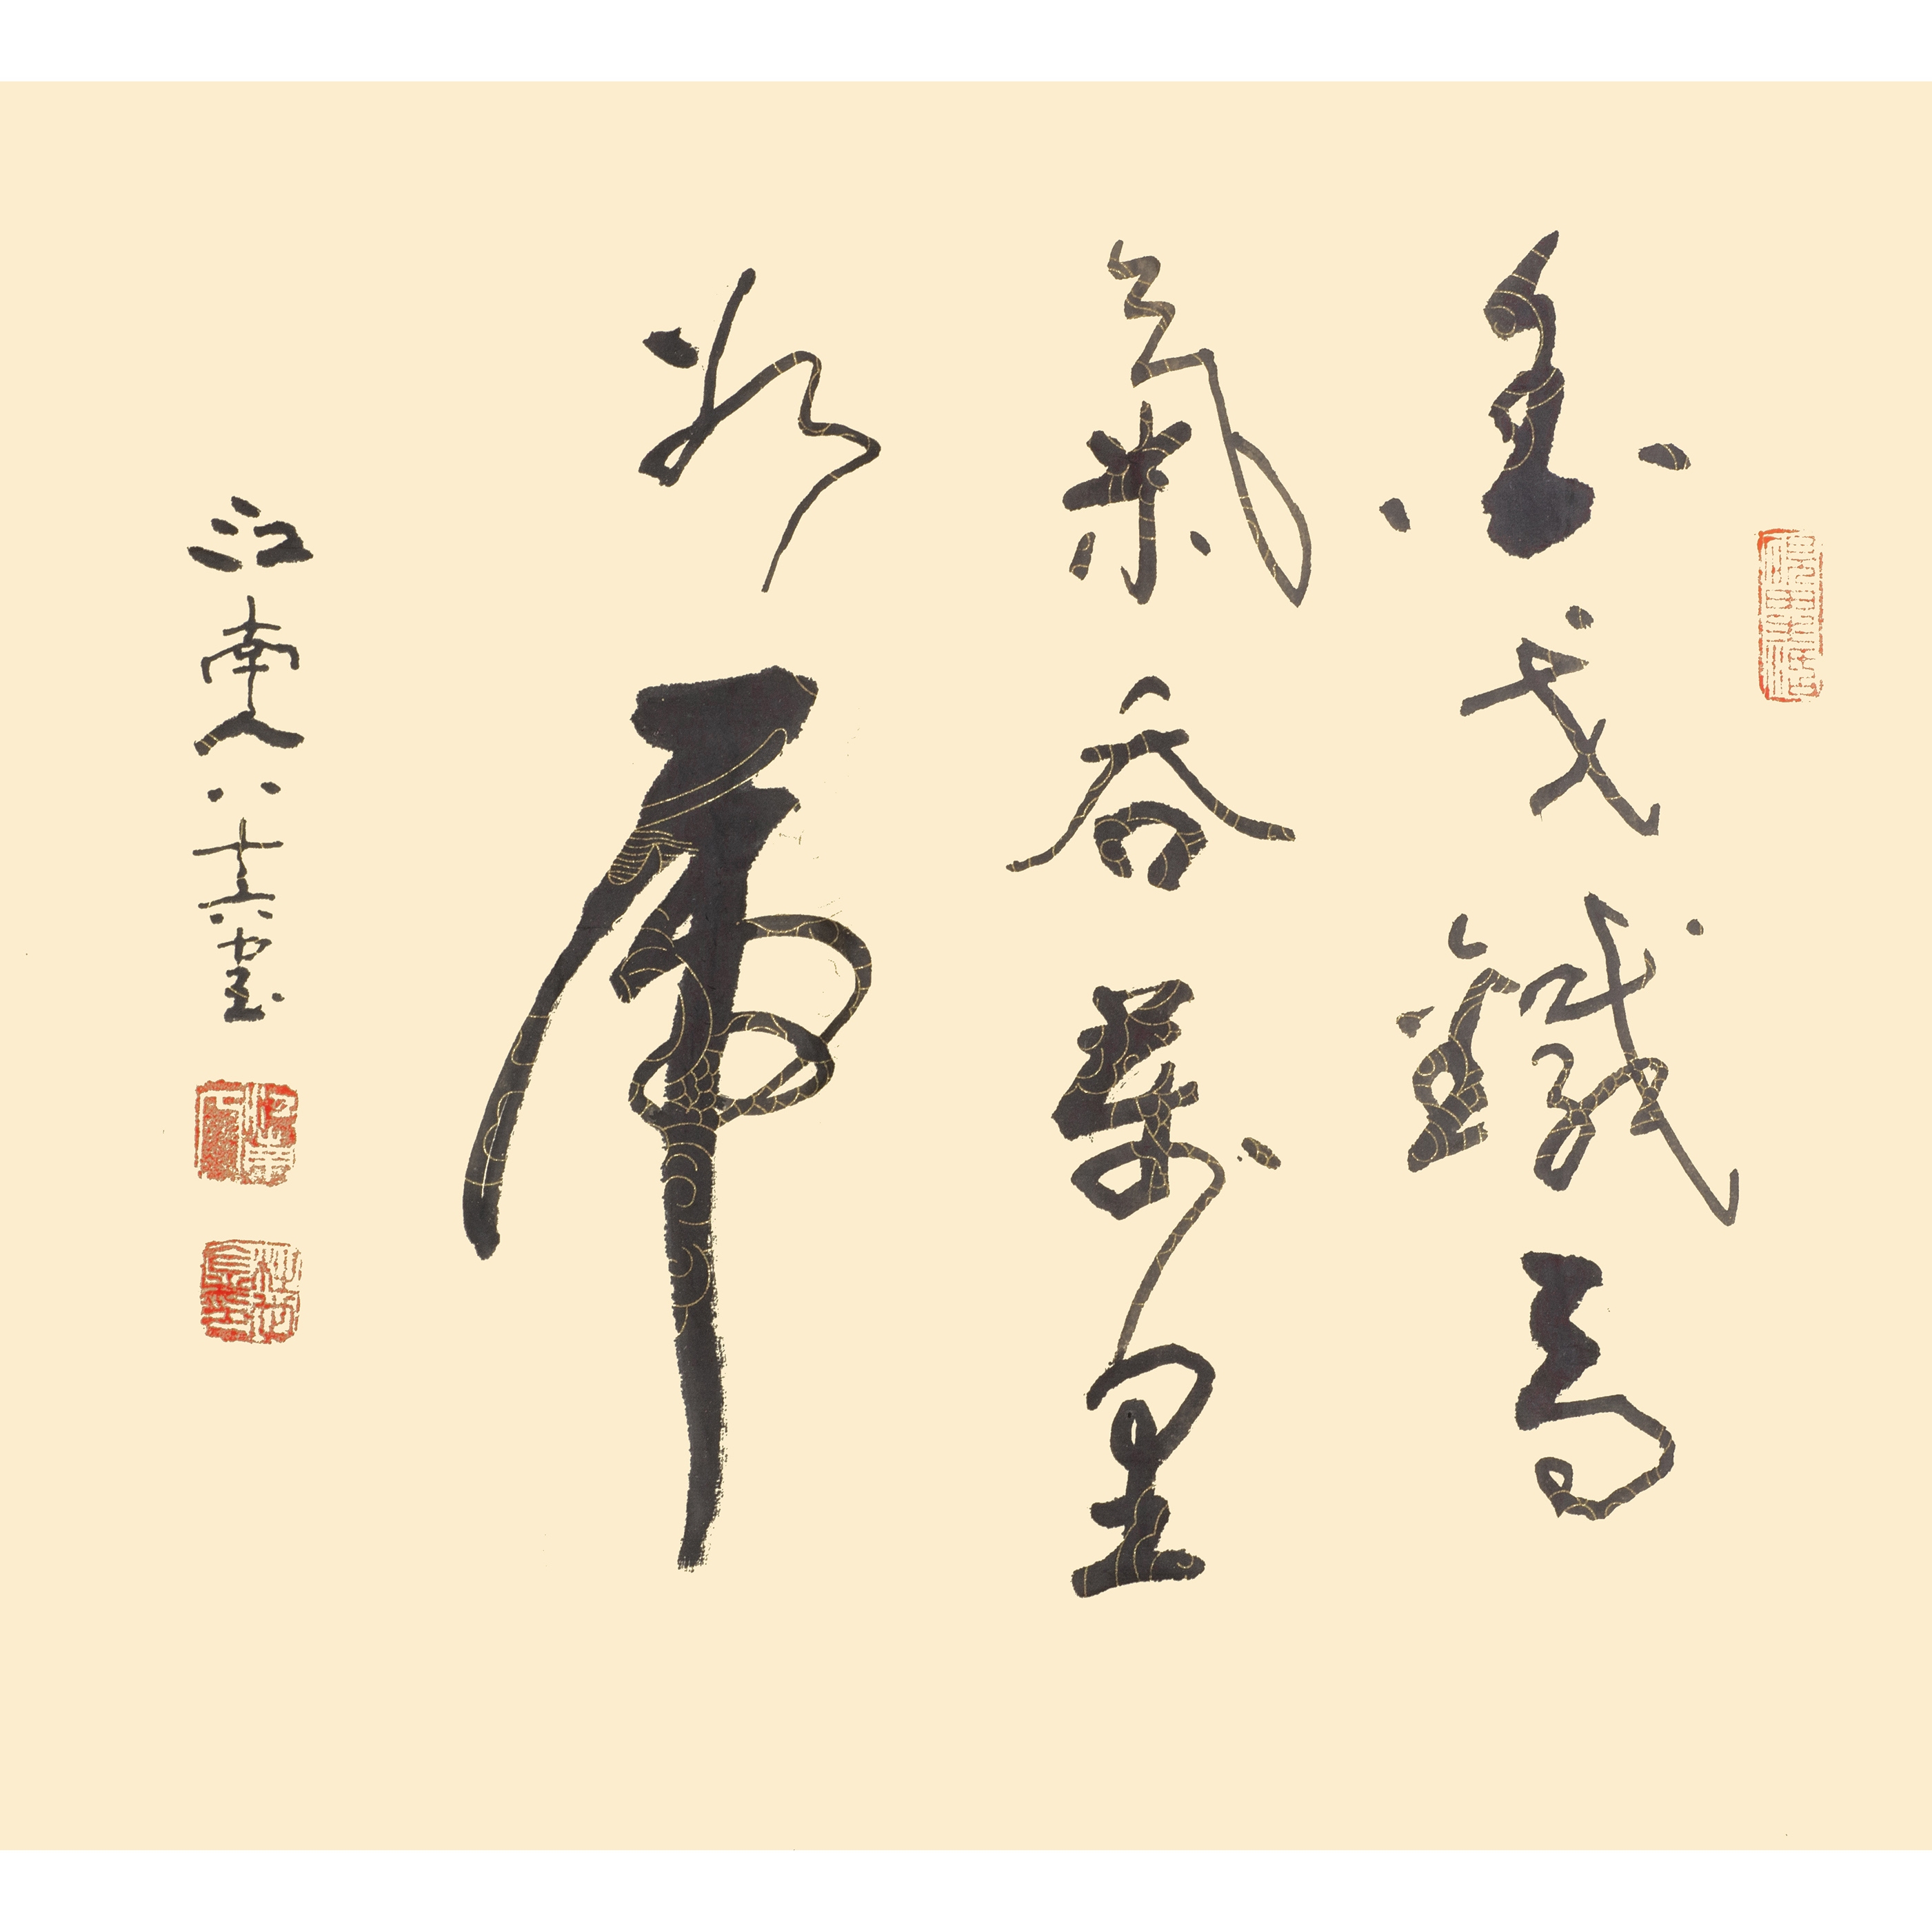 金戈鐵馬
氣吞萬里
如虎
江南人八十六叟